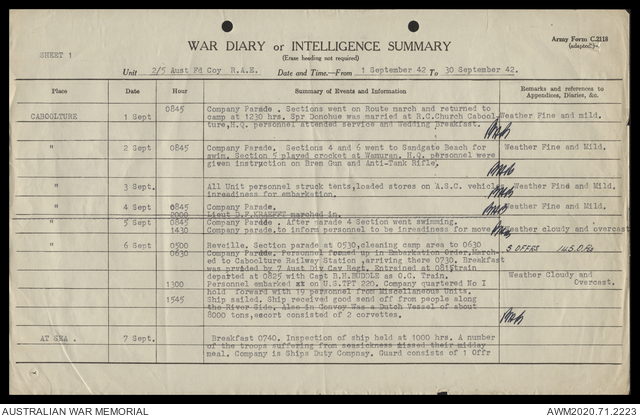 Army Form C.2118
(adapted).
SHEET 1
WAR DIARY or INTELLIGENCE SUMMARY
(Erase heading not required)
Unit 2/5 Aust Fd Coy R.A.E. Date and Time.—From 1 September 42 To 30 September 42.
Place Date Hour Summary of Events and Information Remarks and references to
Appendices, Diaries, &c.
CABOOLTURE 1 Sept 0845 Company Parade . Sections went on Route march and returned to
camp at 1230 hrs. Spr Donohue was married at R.C.Church Cabool- Weather Fine and mild.
ture,H.Q. personnel attended service and Wedding Breakfast.
" 2 Sept 0845 Company Parade. Sections 4 and 6 went to Sandgate Beach for Weather Fine and Mild.
swim. Section 5 played crocket at Wamuran. H.Q. personnel were
given instruction on Bren Gun and Anti-Tank Rifle.
" 3 Sept. All Unit personnel struck tents,loaded stores on A.S.C. vehicles Weather Fine and Mild.
inreadiness for embarkation.
" 4 Sept 0845 Company Parade. Weather Fine and Mild.
2000 Lieut D.F.KRAEFFT marched in.
" 5 Sept 0845 Company Parade. After parade 4 Section went swimming.
1430 Company parade.to inform personnel to be inreadiness for move Weather cloudy and overcast
" 6 Sept 0500 Reveille. Section parade at 0530,cleaning camp area to 0630 8 OFFRS 145 O.Rs
0630 Company Parade. Personnel formed up in Embarkation Order,March-
ed to Caboolture Railway Station ,arriving there 0730. Breakfast
was provided by 7 Aust Div Cav Regt. Entrained at 0815train
departed at 0825 with Capt B.H.BUDDLE as O.C. Train. Weather Cloudy and
1300 Personnel embarked on U.S.TPT 220. Company quartered No I Overcast.
hold forward with 19 personnel from Miscellaneous Units.
1545 Ship sailed. Ship received good send off from people along
the River Side. Also in Convoy Was a Dutch Vessel of about
8000 tons,escort consisted of 2 corvettes.
AT SEA . 7 Sept. Breakfast 0740. Inspection of ship held at 1000 hrs. A number
of the troops suffering from seasickness missed their midday
meal. Company is Ships Duty Compnay. Guard consists of 1 Offr
AUSTRALIAN WAR MEMORIAL AWM2020.71.2223